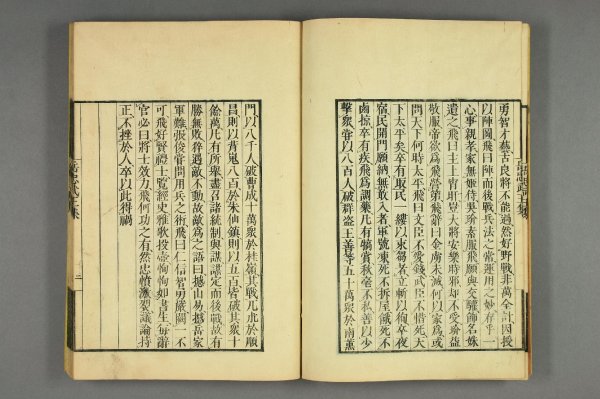 勇智才藝古良將不能過然好野戰非萬全計因授
以陣圖飛曰陣而後戰兵法之常運用之妙存乎一
心事親孝家無姬侍吳玠素服飛願與交驩飾名姝
遺之飛曰主上宵旰豈大將安樂時邪却不受玠益
敬服帝欲爲飛營第飛辭曰金虜未滅何以家爲或
問天下何時太平飛曰文臣不愛錢武臣不惜死天
下太平矣卒有取民一縷以束芻者立斬以徇卒夜
宿民開門願納無敢入者軍號凍死不拆屋餓死不
鹵掠卒有疾飛爲調藥凡有犒賞秋毫不私善以少
擊衆嘗以八百人破群盜王善等五十萬衆於南薰
門以八千人破曹成十萬衆於桂嶺其戰兀朮於順
昌則以背嵬八百於朱仙鎮則以五百皆破其衆十
餘萬凡有所舉盡召諸統制與謀謀定而後戰故有
勝無敗猝遇敵不動故敵爲之語曰撼山易撼岳家
軍難張俊嘗問用兵之術飛曰仁信智勇嚴闕一不
可飛好賢禮士覽經史雅歌投壺恂恂如書生每辭
官必曰將士效力飛何功之有然忠憤激烈議論持
正不挫於人卒以此得禍